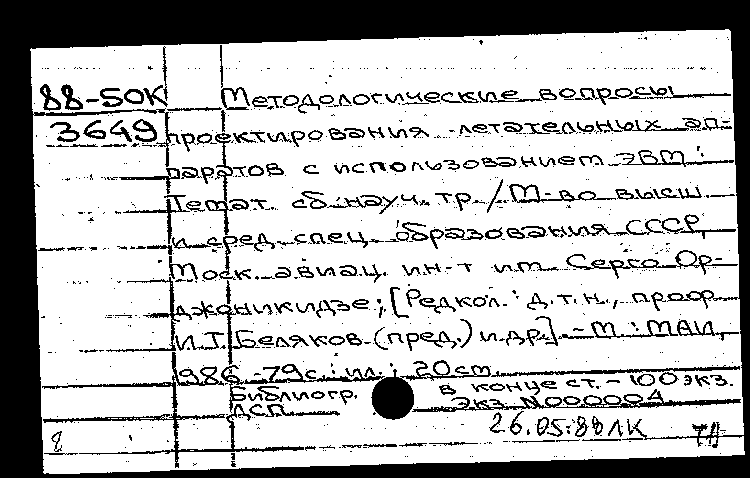 88-50К Методологические вопросы
3649 проектирования летательных ап-
паратов с использованием ЭВМ :
Темат. сб. науч. тр. / М-во высш.
и сред. спец. образования СССР,
Моск. авиац. ин-т им. Серго Ор-
джоникидзе; [Редкол.: д.т.н., проф.
И.Т. Беляков (пред.) и др.]. - М. : МАИ,
1986. - 79 с. : ил. ; 20 см.
Библиогр. в конце ст. - 100 экз.
ДСП Экз. N000004
26.05.88 ЛК
8